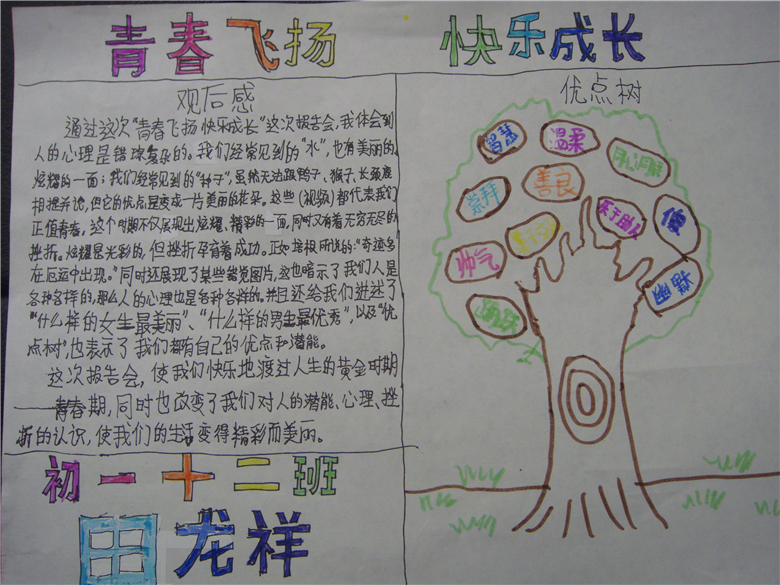 青春飞扬 快乐成长
观后感
通过这次“青春飞扬 快乐成长”这次报告会,我体会到
人的心理是错综复杂的。我们经常见到的“水”,也有美丽的、
炫耀的一面;我们经常见到的“种子”,虽然无法跟鸽子、猴子、长颈鹿
相提并论,但它的优点是变成一片美丽的花朵。这些(视频)都代表我们
正值青春。这个时期不仅展现出炫耀、精彩的一面,同时又有着无穷无尽的
挫折。炫耀是光彩的,但挫折孕育着成功。正如培根所说的:“奇迹多
在厄运中出现。”同时还展现了某些错觉图片,这也暗示了我们人是
各种各样的,那么人的心理也是各种各样的。并且还给我们讲述了
“什么样的女生最美丽”、“什么样的男生最优秀”,以及“优
点树”,也表示了我们都有自己的优点和潜能。
这次报告会,使我们快乐地渡过人生的黄金时期
——青春期,同时也改变了我们对人的潜能、心理、挫
折的认识,使我们的生活变得精彩而美丽。
初一十二班
田龙祥
优点树
智慧
温柔
崇拜
善良
乐于助人
帅气